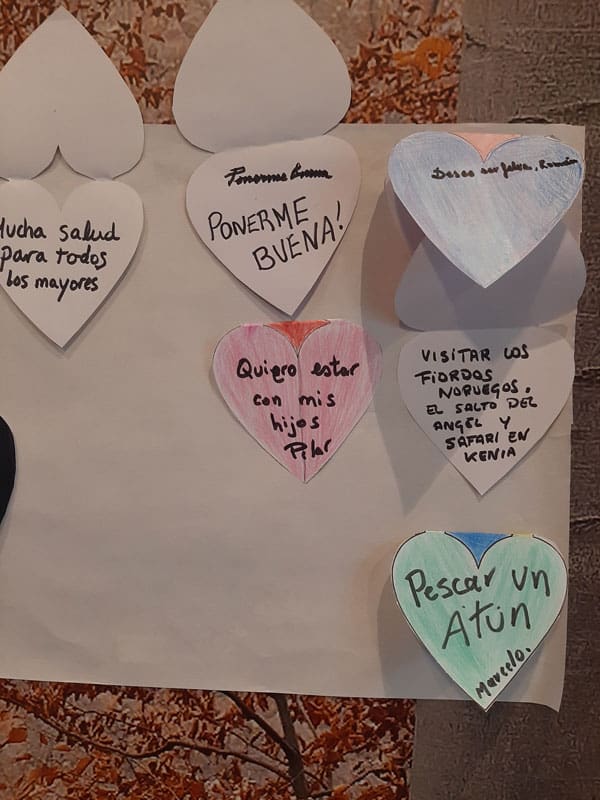 Mucha salud
para todos
los mayores
Ponerme Buena
PONERME
BUENA!
Deseo ser feliz, Román
Quiero estar
con mis
hijos
Pilar
VISITAR LOS
FIORDOS
NORUEGOS.
EL SALTO DEL
ANGEL Y
SAFARI EN
KENIA
Pescar un
Atún
Marcelo.